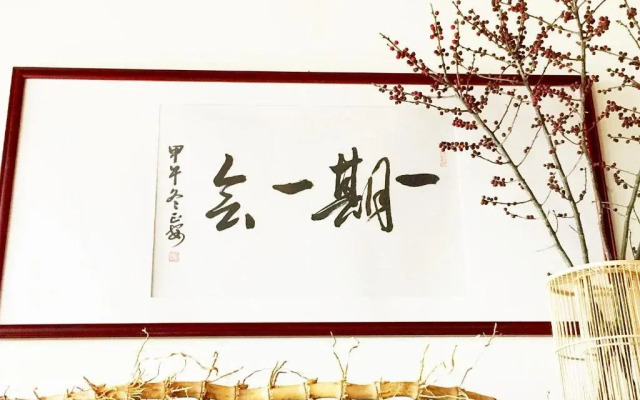 一期一会
甲午冬正